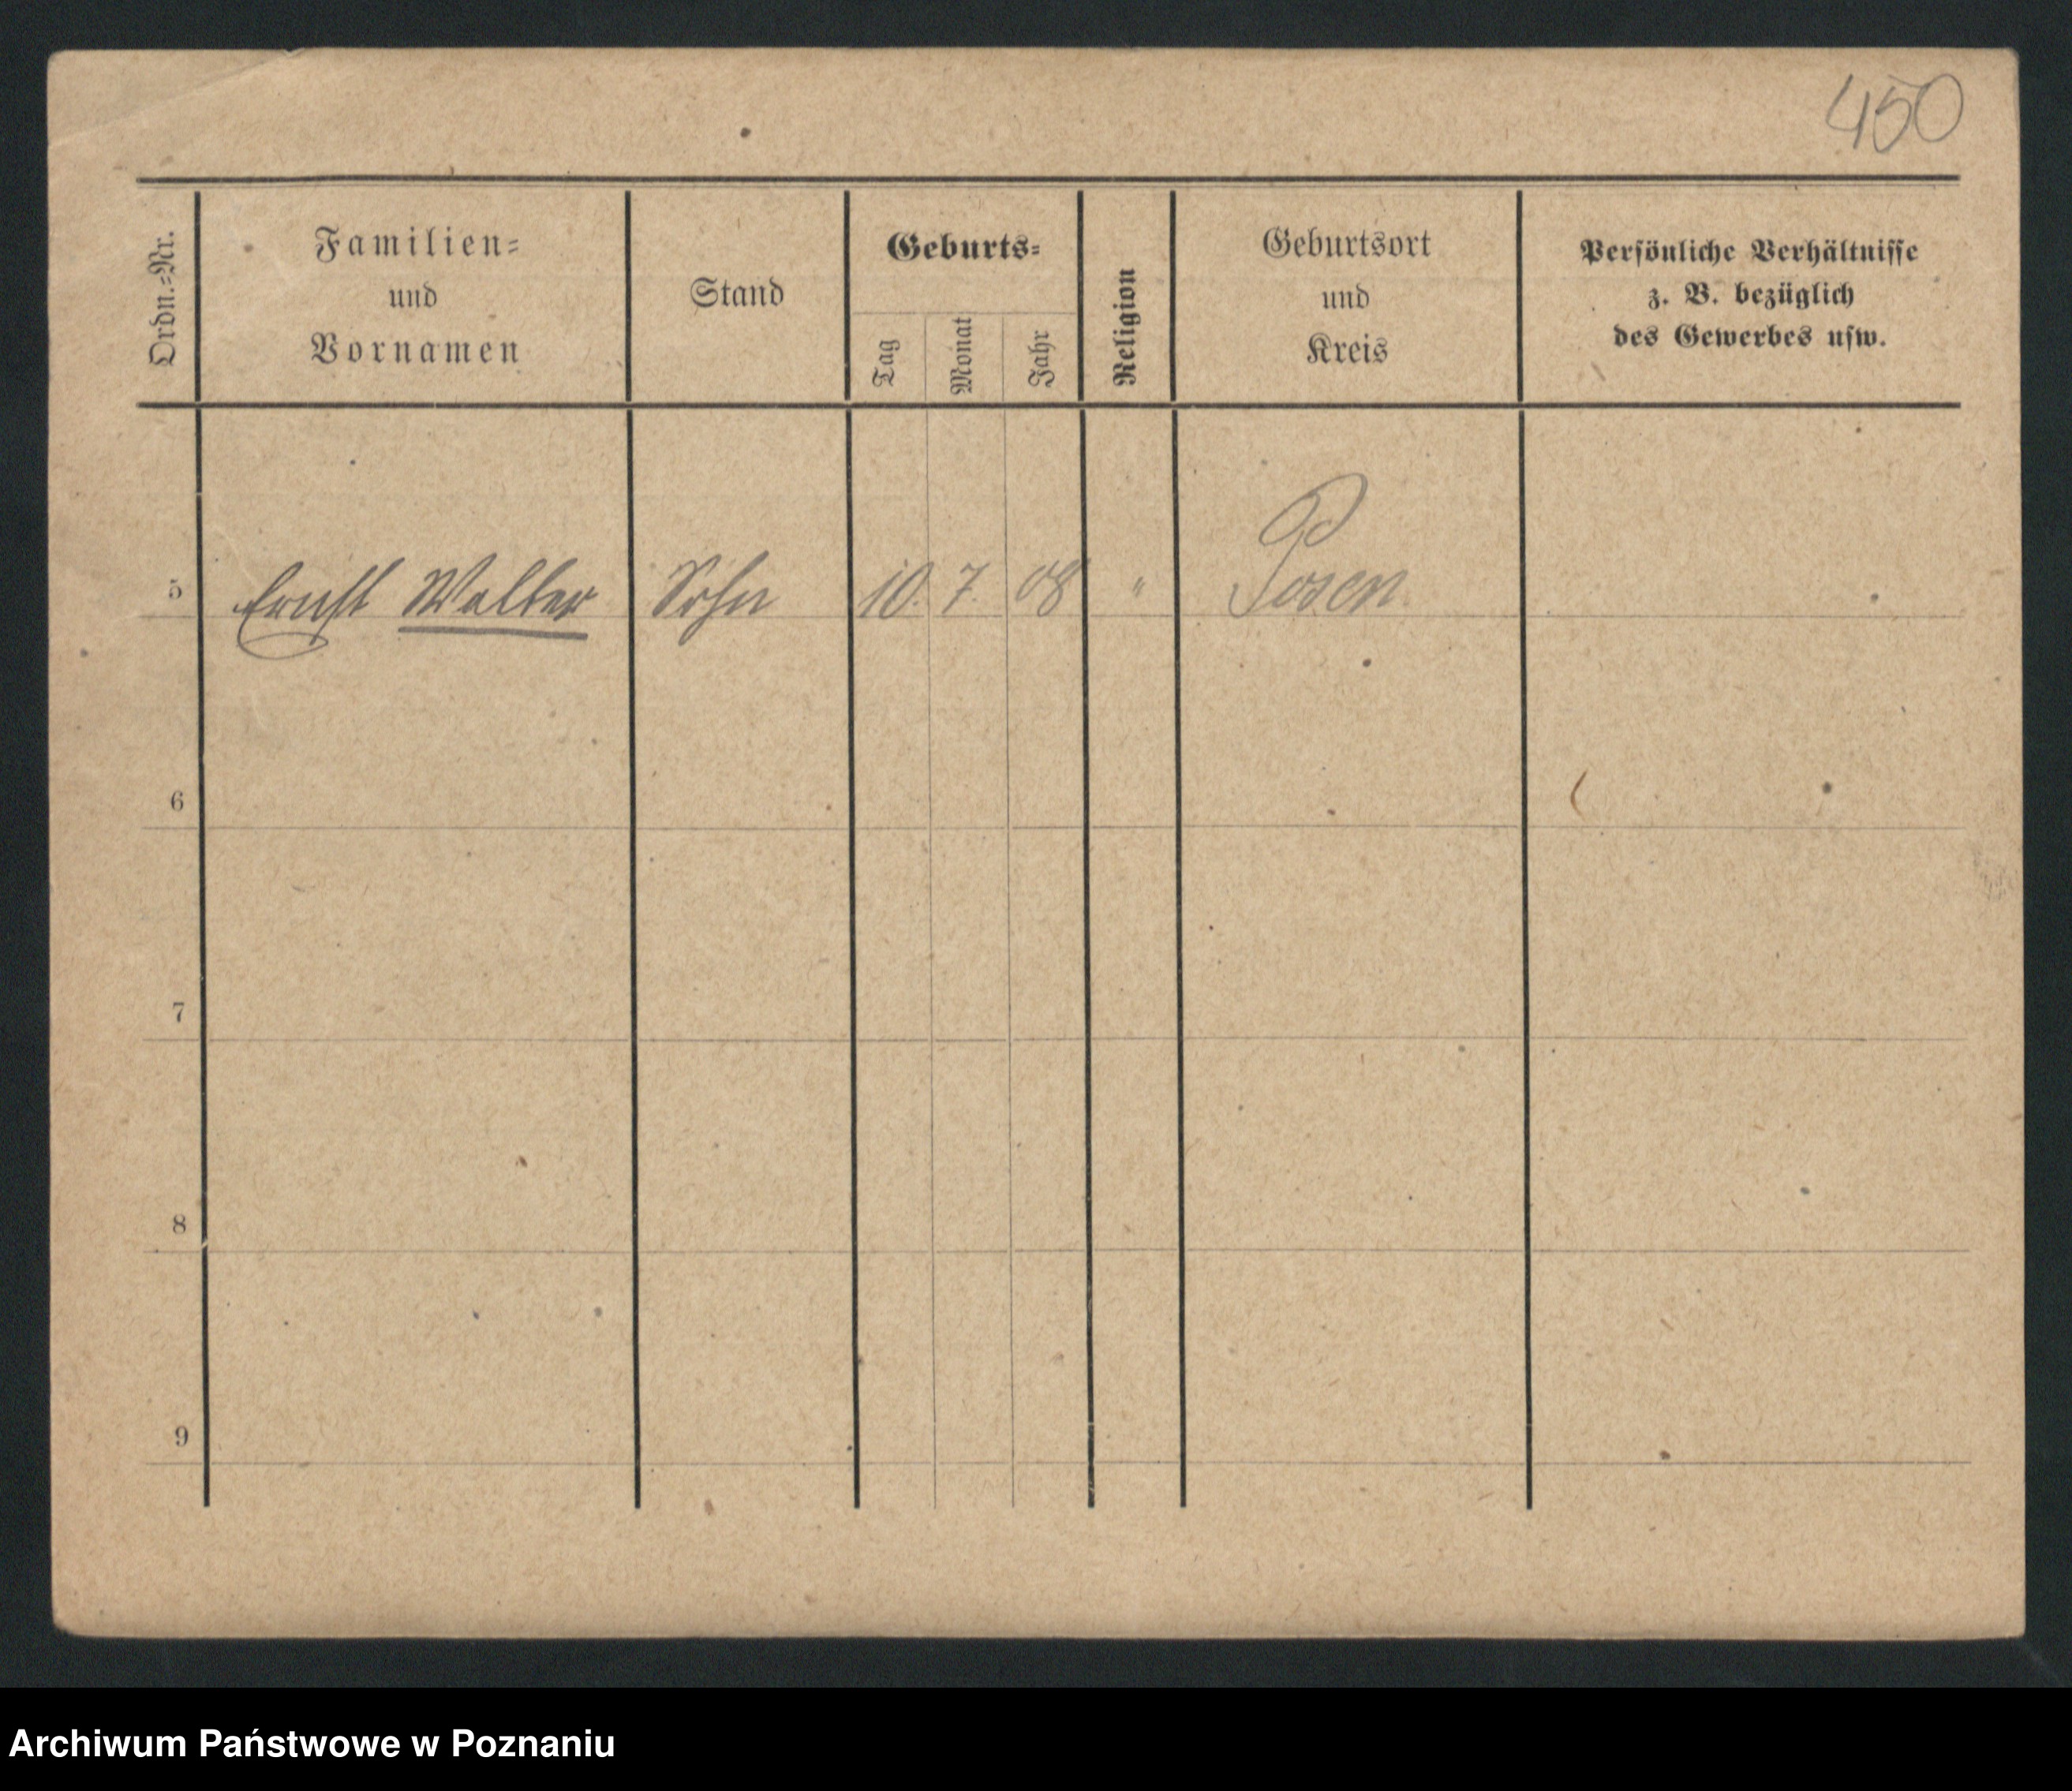 450
Ordn.-Nr.
Familien-
und
Vornamen
Stand
Geburts-
Tag
Monat
Jahr
Religion
Geburtsort
und
Kreis
Persönliche Verhältnisse
z. B. bezüglich
des Gewerbes usw.
5 Ernst Walter Sohn 10. 7. 08 " Posen
6
7
8
9
Archiwum Państwowe w Poznaniu